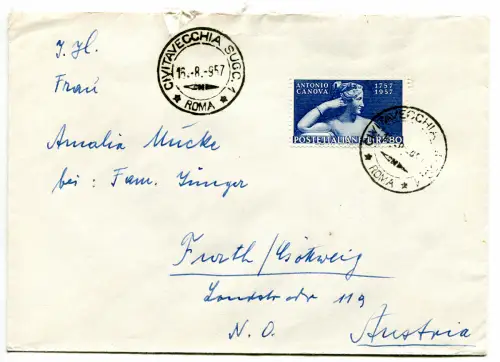 I. Hl.
Frau
Amalia Mücke
bei : Fam. Jünger
Furth/Göttweig
Landstraße 119
N. O.
Austria
CIVITAVECCHIA SUCC. 1
16.-8.-957
ROMA
ANTONIO CANOVA
1757
1957
POSTE ITALIANE L. 80
CIVITAVECCHIA
ROMA